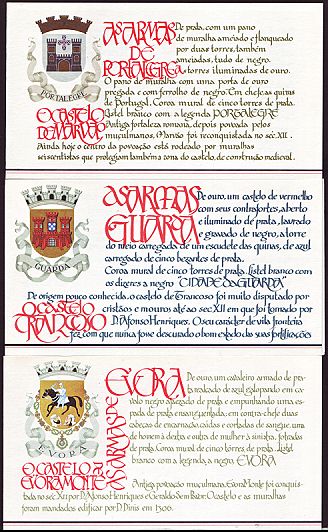 AS ARMAS
DE
PORTALEGRE
De prata, com um pano
de muralha ameiado e flanqueado
por duas torres, também
ameiadas, tudo de negro.
As torres iluminadas de ouro.
O pano de muralha com uma porta de ouro
pregada e com ferrolho de negro. Em chefe, as quinas
de Portugal. Coroa mural de cinco torres de prata.
Listel branco com a legenda PORTALEGRE
PORTALEGRE
O CASTELO
DE MARVÃO
Antiga fortaleza romana, depois povoada pelos
muçulmanos, Marvão foi reconquistada no séc. XII.
Ainda hoje o centro da povoação está rodeado por muralhas
seiscentistas que prolongam também a zona do castelo, de construção medieval.
AS ARMAS
GUARDA
De ouro, um castelo de vermelho
com seus contrafortes, aberto
e iluminado de prata, lavrado
e gravado de negro, a torre
do meio carregada de um escudete das quinas, de azul
carregado de cinco besantes de prata.
Coroa mural de cinco torres de prata. Listel branco com
os dizeres a negro "CIDADE DA GUARDA"
GUARDA
O CASTELO
TRANCOSO
De origem pouco conhecida, o castelo de Trancoso foi muito disputado por
cristãos e mouros até ao sec XII em que foi tomado por
D. Afonso Henriques. O seu carácter de vila fronteira
fez com que nunca fosse descurado o bom estado das suas fortificações
AS ARMAS DE
EVORA
De ouro, um cavaleiro armado de pra-
ta realçado de azul galopando em ca-
valo negro ajaezado de prata e empunhando uma es-
pada de prata ensanguentada; em contra-chefe duas
cabeças de encarnação, caídas e cortadas de sangue, uma
de homem à dextra e outra de mulher à sinistra, fotadas
de prata. Coroa mural de cinco torres de prata. Listel
branco com a legenda, a negro, EVORA
EVORA
O CASTELO DE
EVORAMONTE
Antiga povoação muçulmana, Evora Monte foi conquis-
tada no séc XII por D. Afonso Henriques e Geraldo Sem Pavor. O castelo e as muralhas
foram mandados edificar por D. Dinis em 1306.